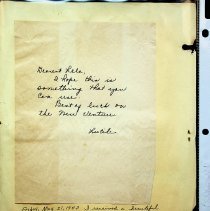 Dearest Lela
I hope this is
something that you
can use.
Best of luck on
the New Venture
Lucile
Nov. 21, 1940 I received a beautiful